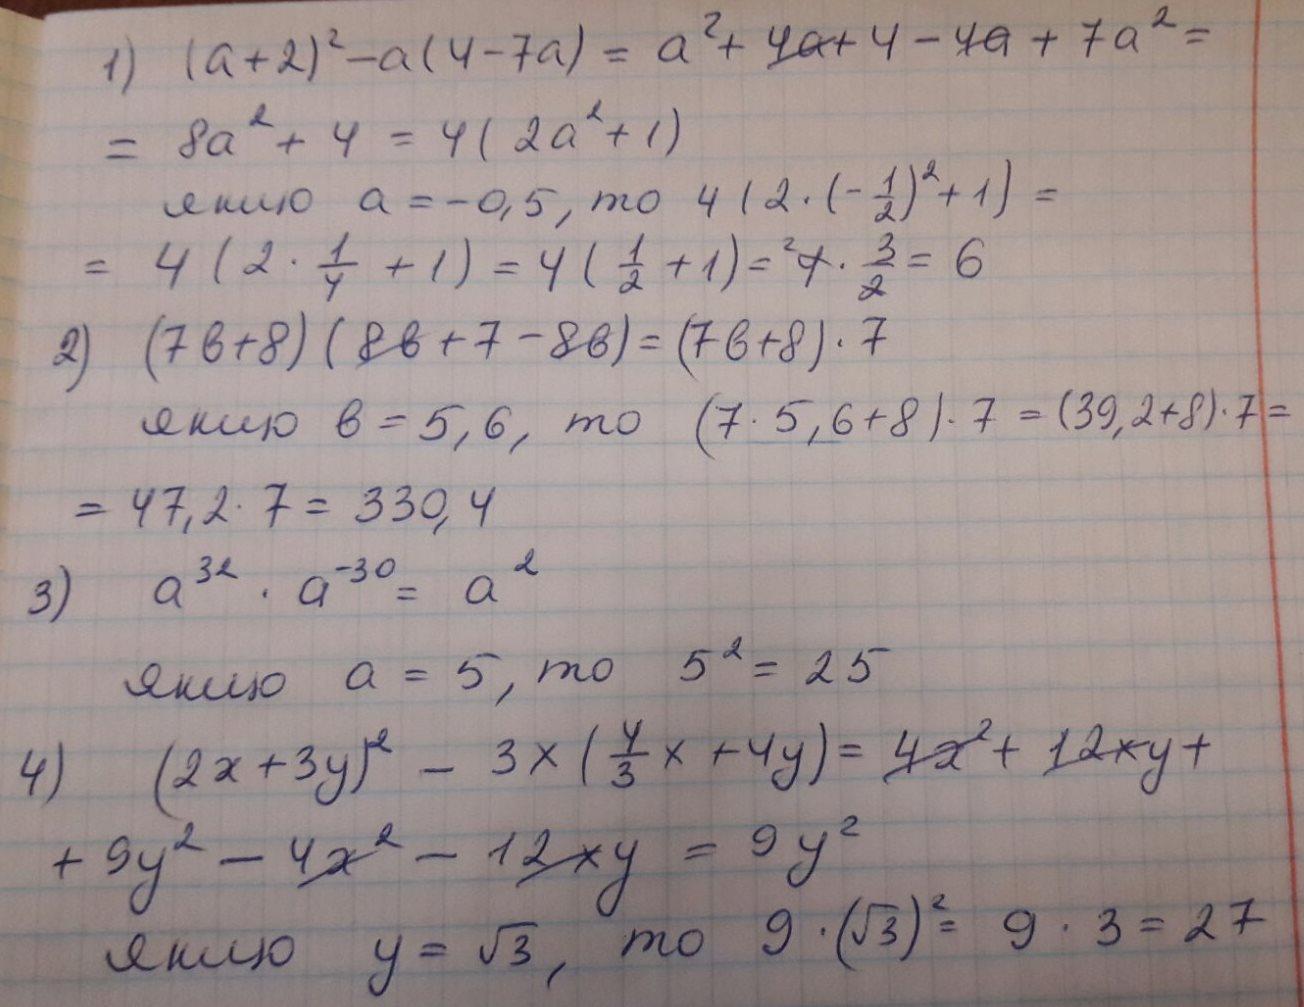 1) (a+2)²-a(4-7a) = a²+4a+4-4a+7a² =
= 8a²+4 = 4(2a²+1)
якщо a = -0,5, то 4(2·(-1/2)²+1) =
= 4(2·1/4+1) = 4(1/2+1) = ²4·3/2 = 6
2) (7в+8)(8в+7-8в) = (7в+8)·7
якщо в = 5,6, то (7·5,6+8)·7 = (39,2+8)·7 =
= 47,2·7 = 330,4
3) a³²·a⁻³⁰ = a²
якщо a = 5, то 5² = 25
4) (2x+3y)² - 3x(4/3x+4y) = 4x²+12xy+
+9y²-4x²-12xy = 9y²
якщо y = √3, то 9·(√3)² = 9·3 = 27